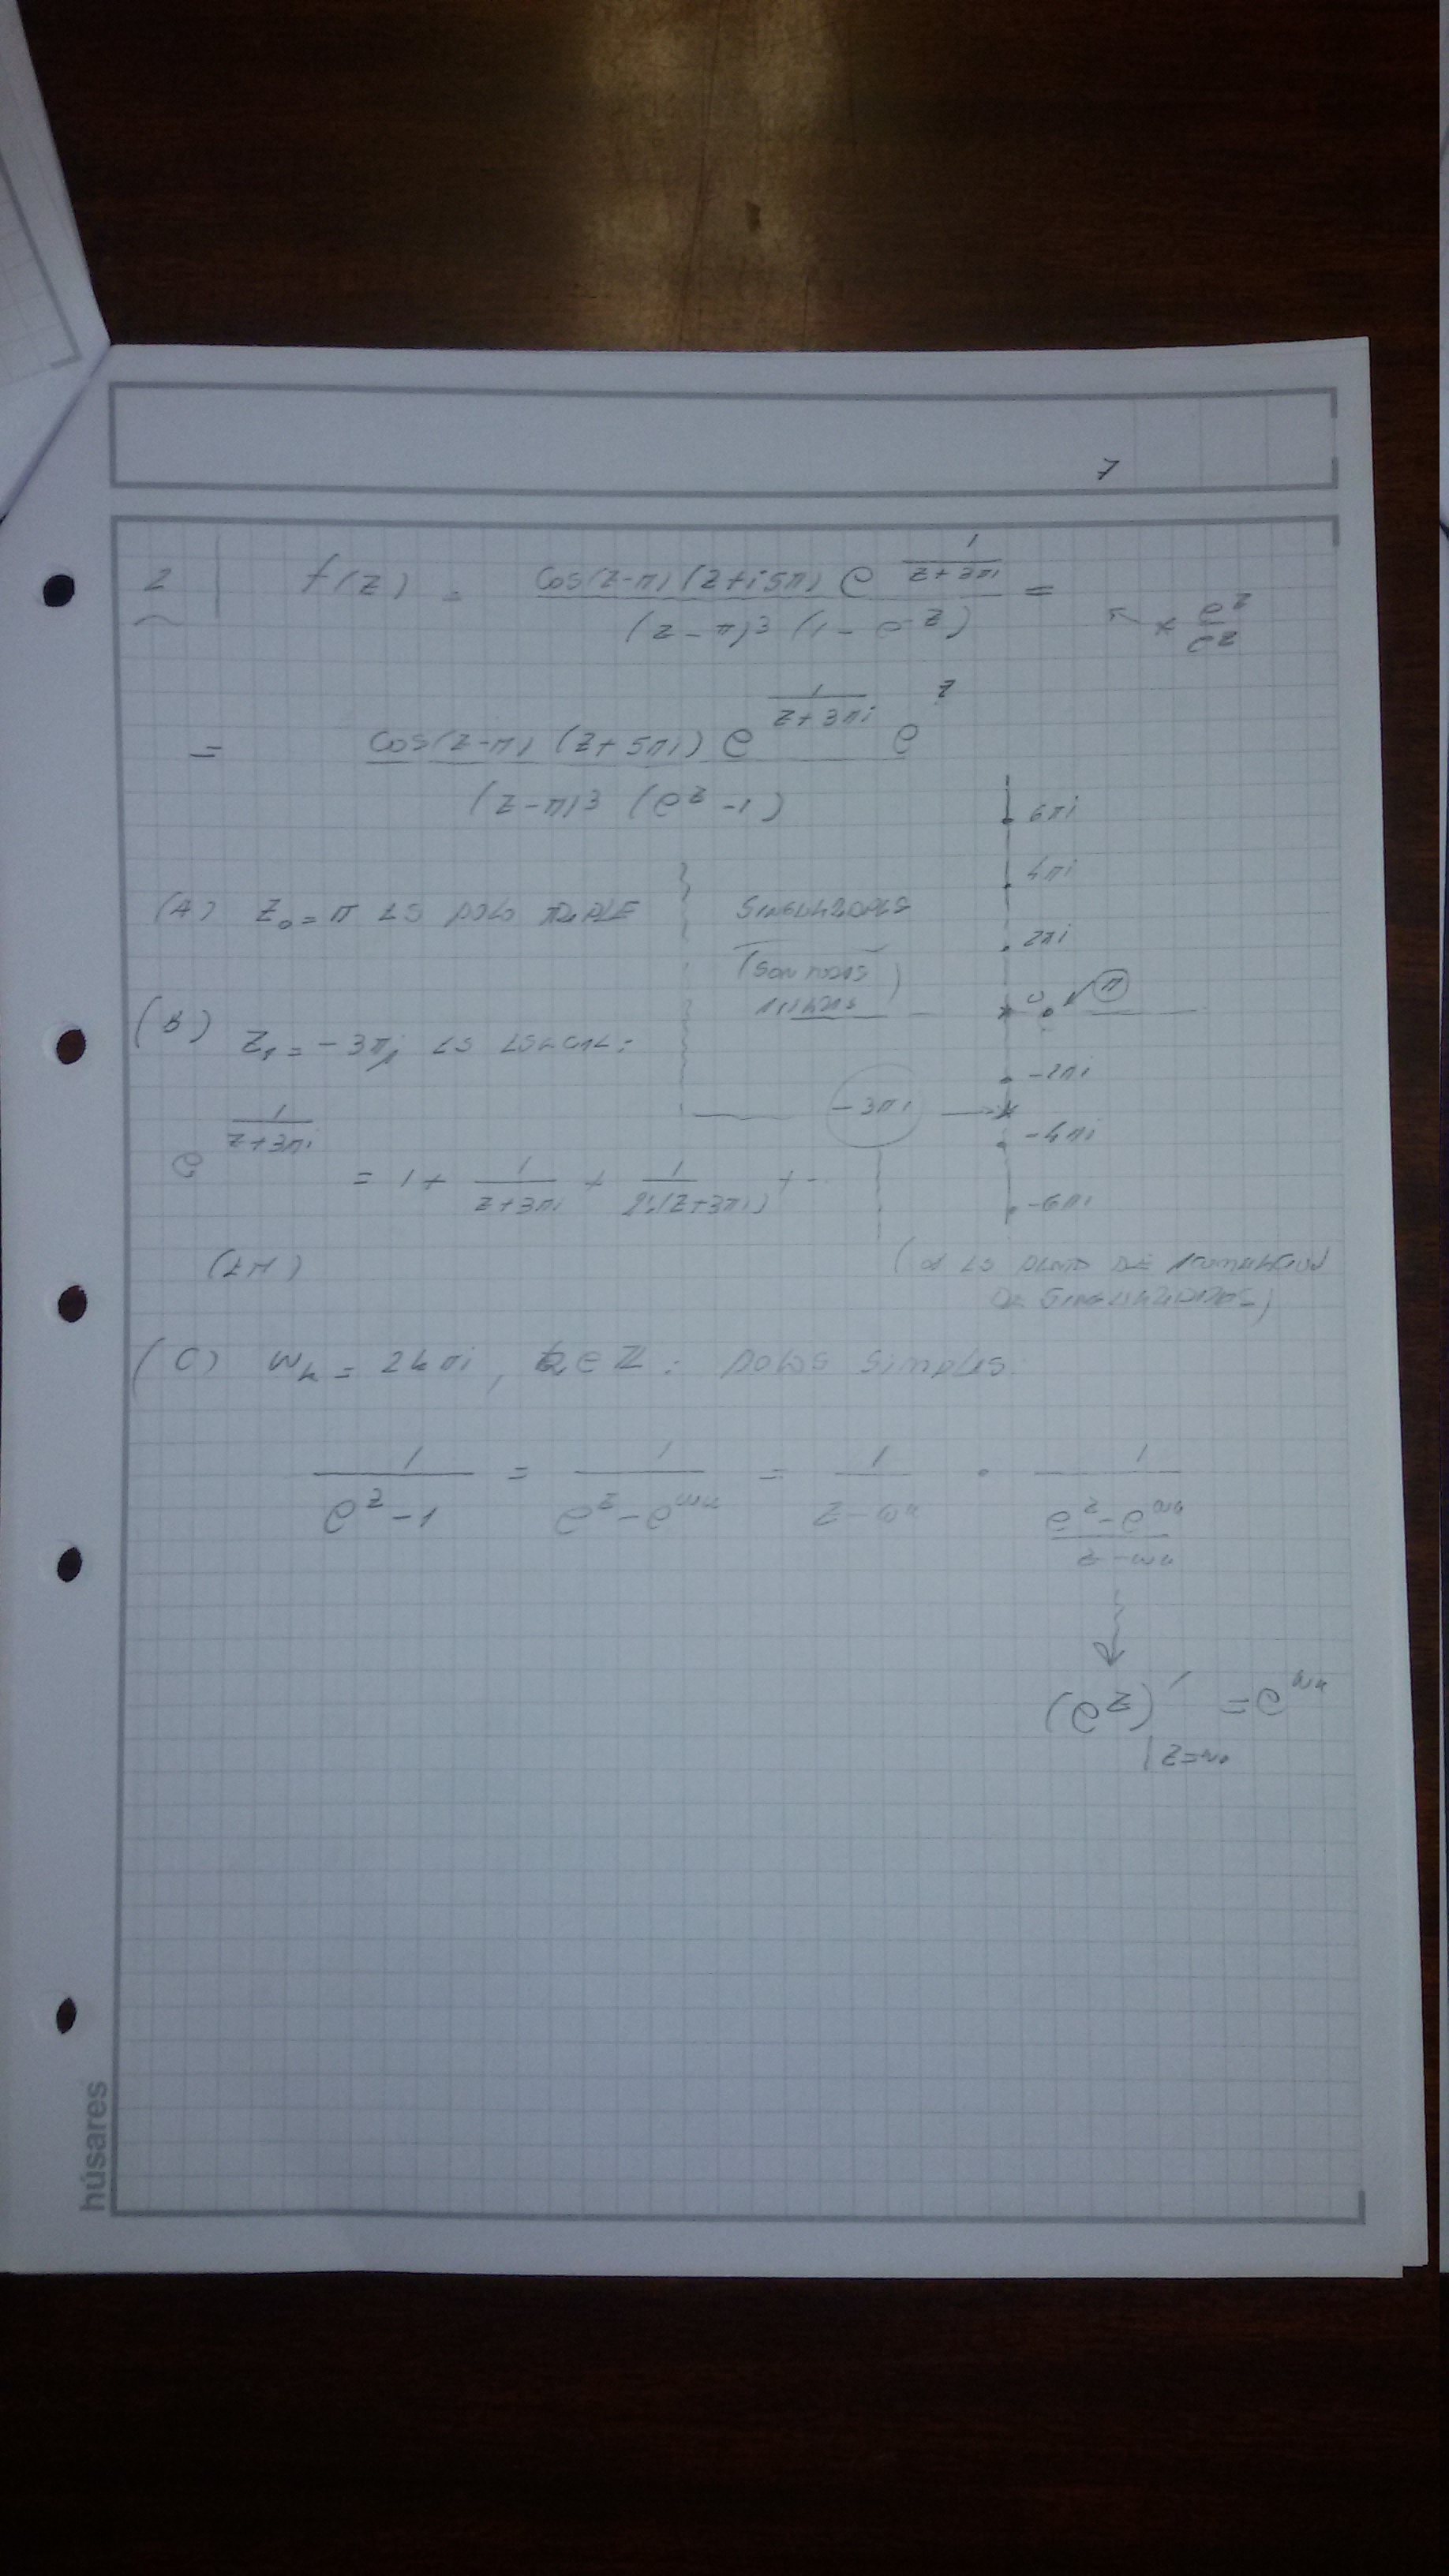 7
2 | f(z) = cos(z-π) (z+i5π) e^{1/(z+3πi)} / (z-π)^3 (1-e^{-z}) =
× e^z/e^z
= cos(z-π) (z+5πi) e^{1/(z+3πi)} e^z / (z-π)^3 (e^z -1)
(A) z_0 = π ES POLO TRIPLE
SINGULARIDADES
(SON TODAS AISLADAS)
6πi
4πi
2πi
0
π
-2πi
-3πi
-4πi
-6πi
(B) z_1 = -3πi ES ESENCIAL:
e^{1/(z+3πi)} = 1 + 1/(z+3πi) + 1/(2!(z+3πi)) + ...
(∞ ES PUNTO DE ACUMULACION
DE SINGULARIDADES)
(C) w_k = 2kπi, k∈ℤ: POLOS SIMPLES:
1/(e^z-1) = 1/(e^z-e^{w_k}) = 1/(z-w_k) · 1/((e^z-e^{w_k})/(z-w_k))
(e^z)' |z=w_k = e^{w_k}
húsares